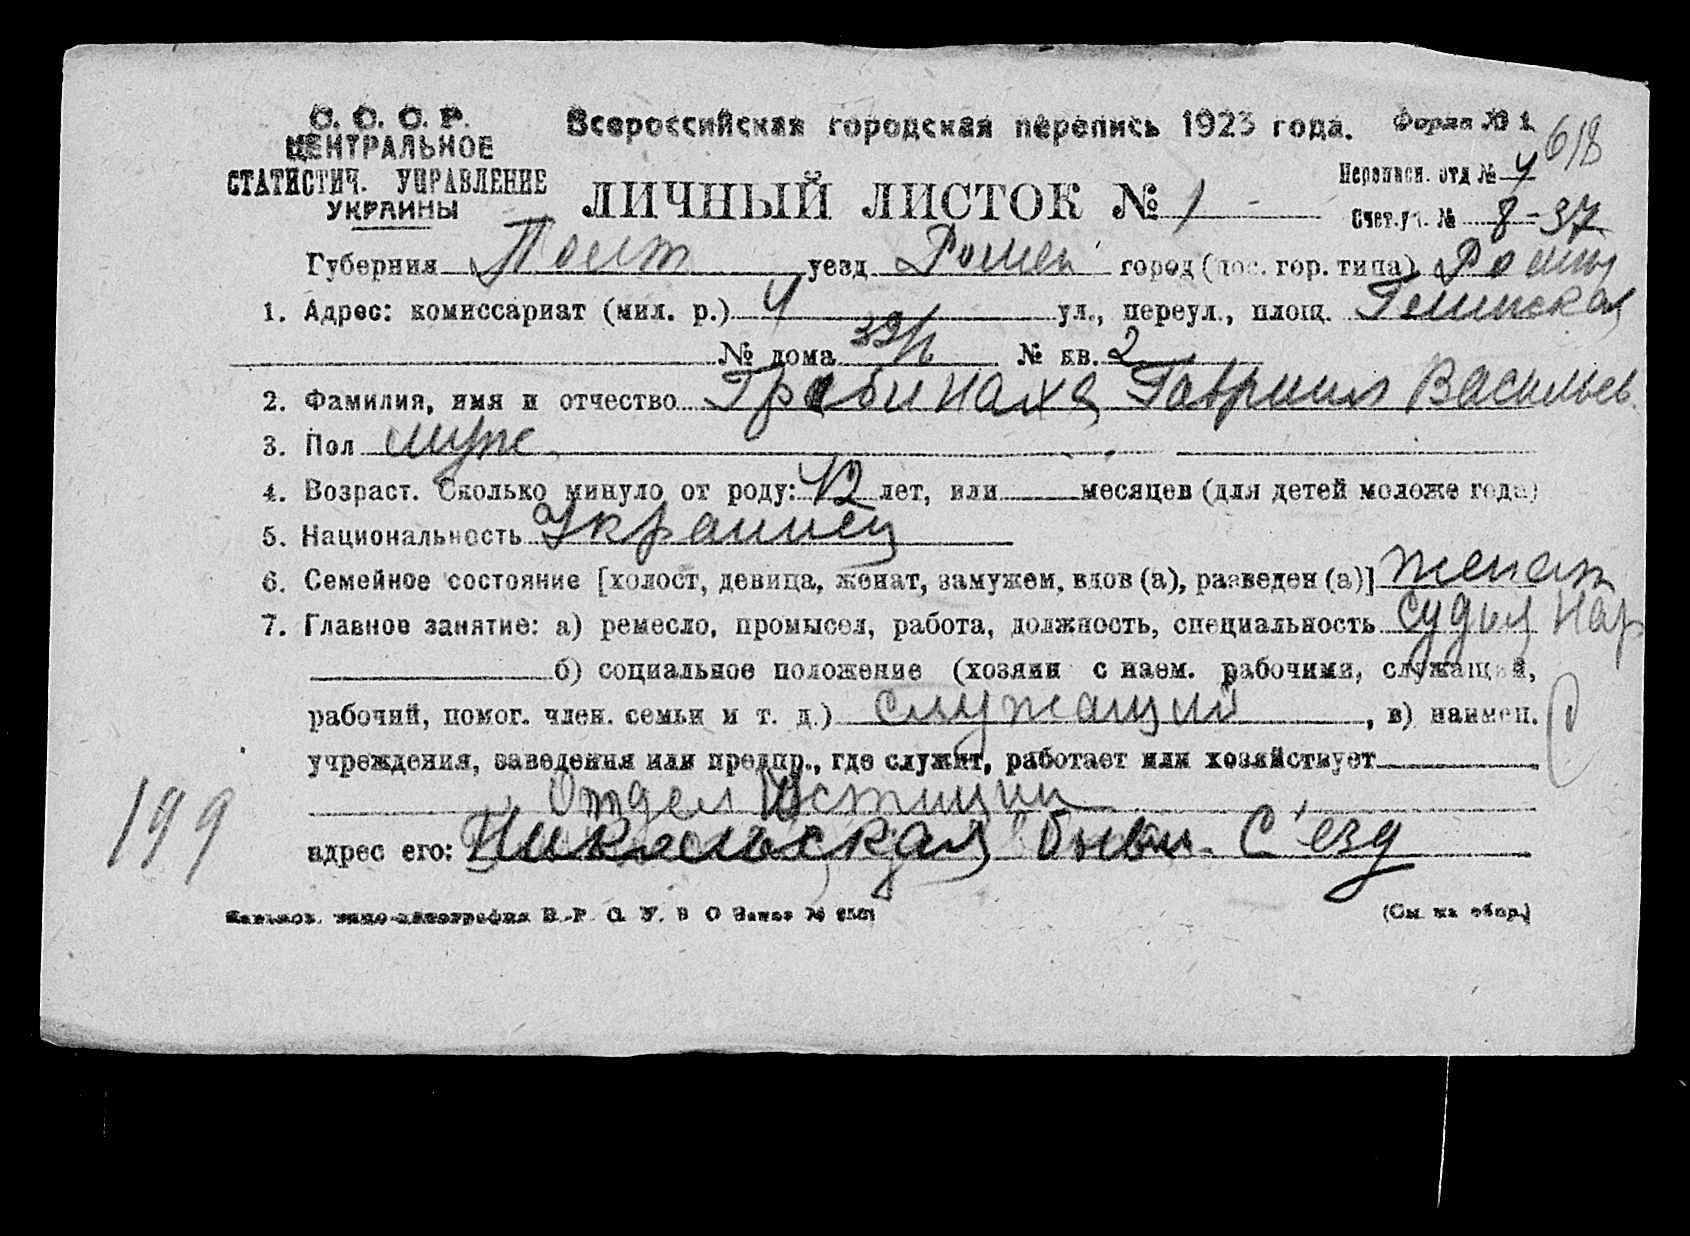 С. С. С. Р.
ЦЕНТРАЛЬНОЕ
СТАТИСТИЧ. УПРАВЛЕНИЕ
УКРАИНЫ
Всероссийская городская перепись 1923 года.
Форма № 1.
618
ЛИЧНЫЙ ЛИСТОК № 1
Переписн. отд № 4
Счет.уч. № 8-37
Губерния Полт уезд Ромен город (пос. гор. типа) Ромны
1. Адрес: комиссариат (мил. р.) 4 ул., переул., площ.
№ дома 39/6 № кв. 2
2. Фамилия, имя и отчество Гавриил Васильев.
3. Пол муж
4. Возраст. Сколько минуло от роду: 42 лет, или месяцев (для детей моложе года)
5. Национальность Украинец
6. Семейное состояние [холост, девица, женат, замужем, вдов (а), разведен (а)] женат
7. Главное занятие: а) ремесло, промысел, работа, должность, специальность Судья Нар
б) социальное положение (хозяин с наем. рабочими, служащий,
рабочий, помог. член. семьи и т. д.) служащий, в) наимен.
учреждения, заведения или предпр., где служит, работает или хозяйствует
Отдел Юстиции
адрес его: Никольская бывш. С'езд
199
(См. на обор.)